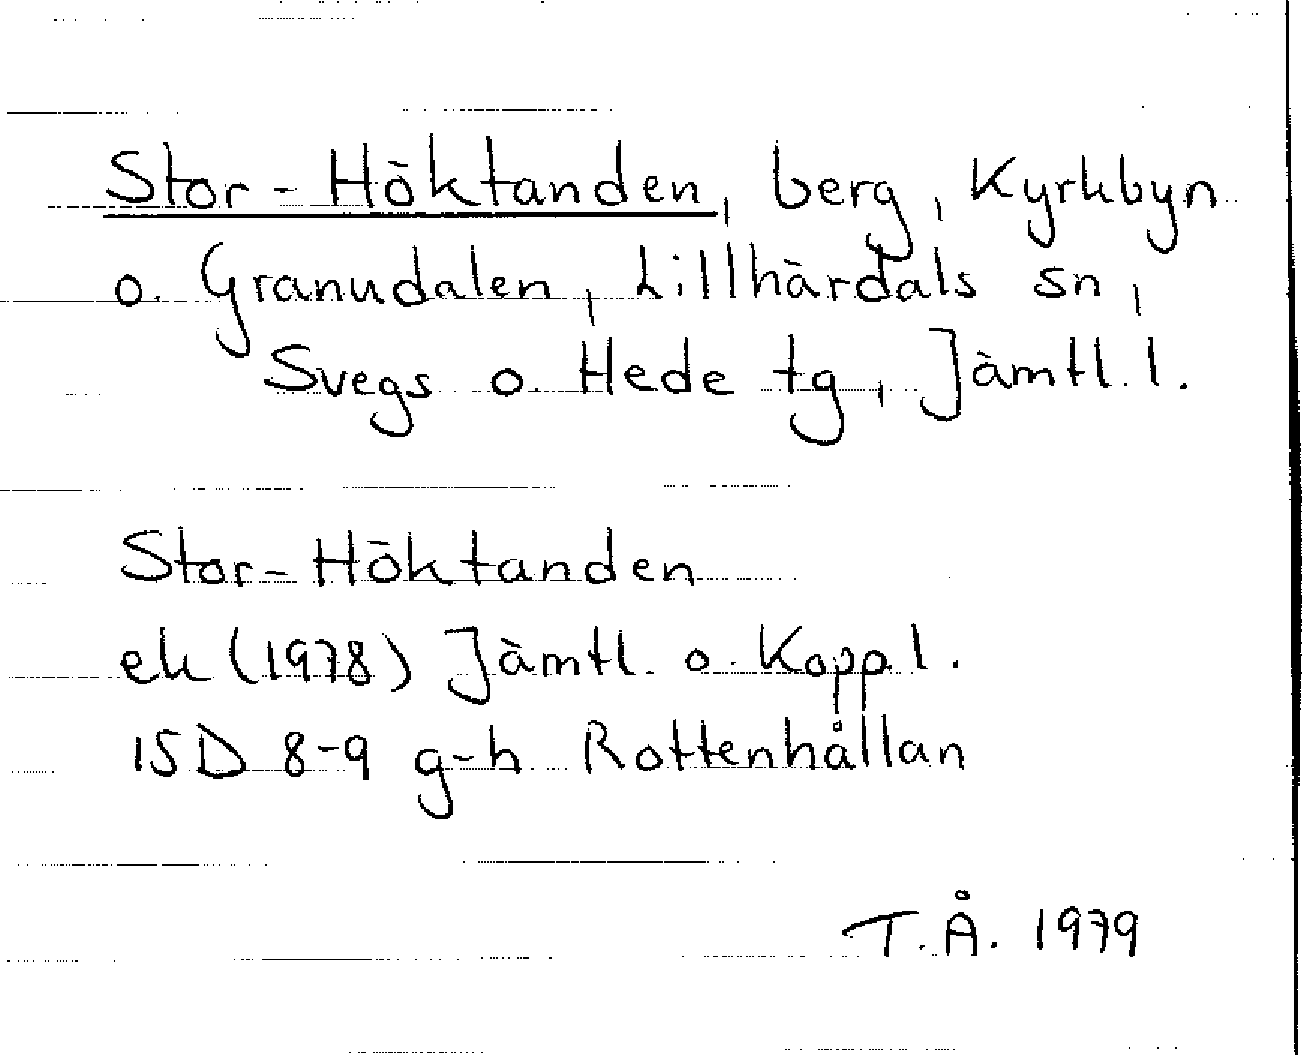 Stor-Höktanden, berg, Kyrkbyn
o. Granudalen, Lillhärdals sn,
Svegs o. Hede tg, Jämtl. l.
Stor-Höktanden
ek (1978) Jämtl. o. Kopp l.
15D 8-9 g-h Rottenhållan
T.Å. 1979